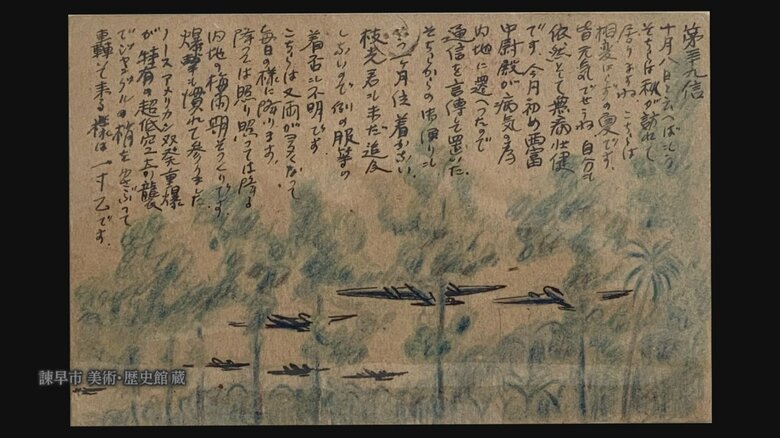 第五十九信
十月八日と云へばもう
そちらは秋が訪れて
居りますね こちらは
相変はらずの夏です。
皆元気でせうね 自分も
依然として無病壮健
です。今月初め西富
中尉殿が病気の為
内地に還へったので
通信を言傳て置いた
そちらからの御便りも
二ヶ月位着かない
枝光君にも未だ追及
しないので例の服等の
着否も不明です。
こちらは又雨が多くなって
毎日の様に降ります。
降っては照り照っては降る
内地の梅雨期そっくりです。
爆撃も慣れて参りました
ノースアメリカン双発重爆
が特有の超低空で
でジャングルの梢をゆさぶって
轟いて来る様は一寸乙です。
諫早市 美術・歴史館 蔵